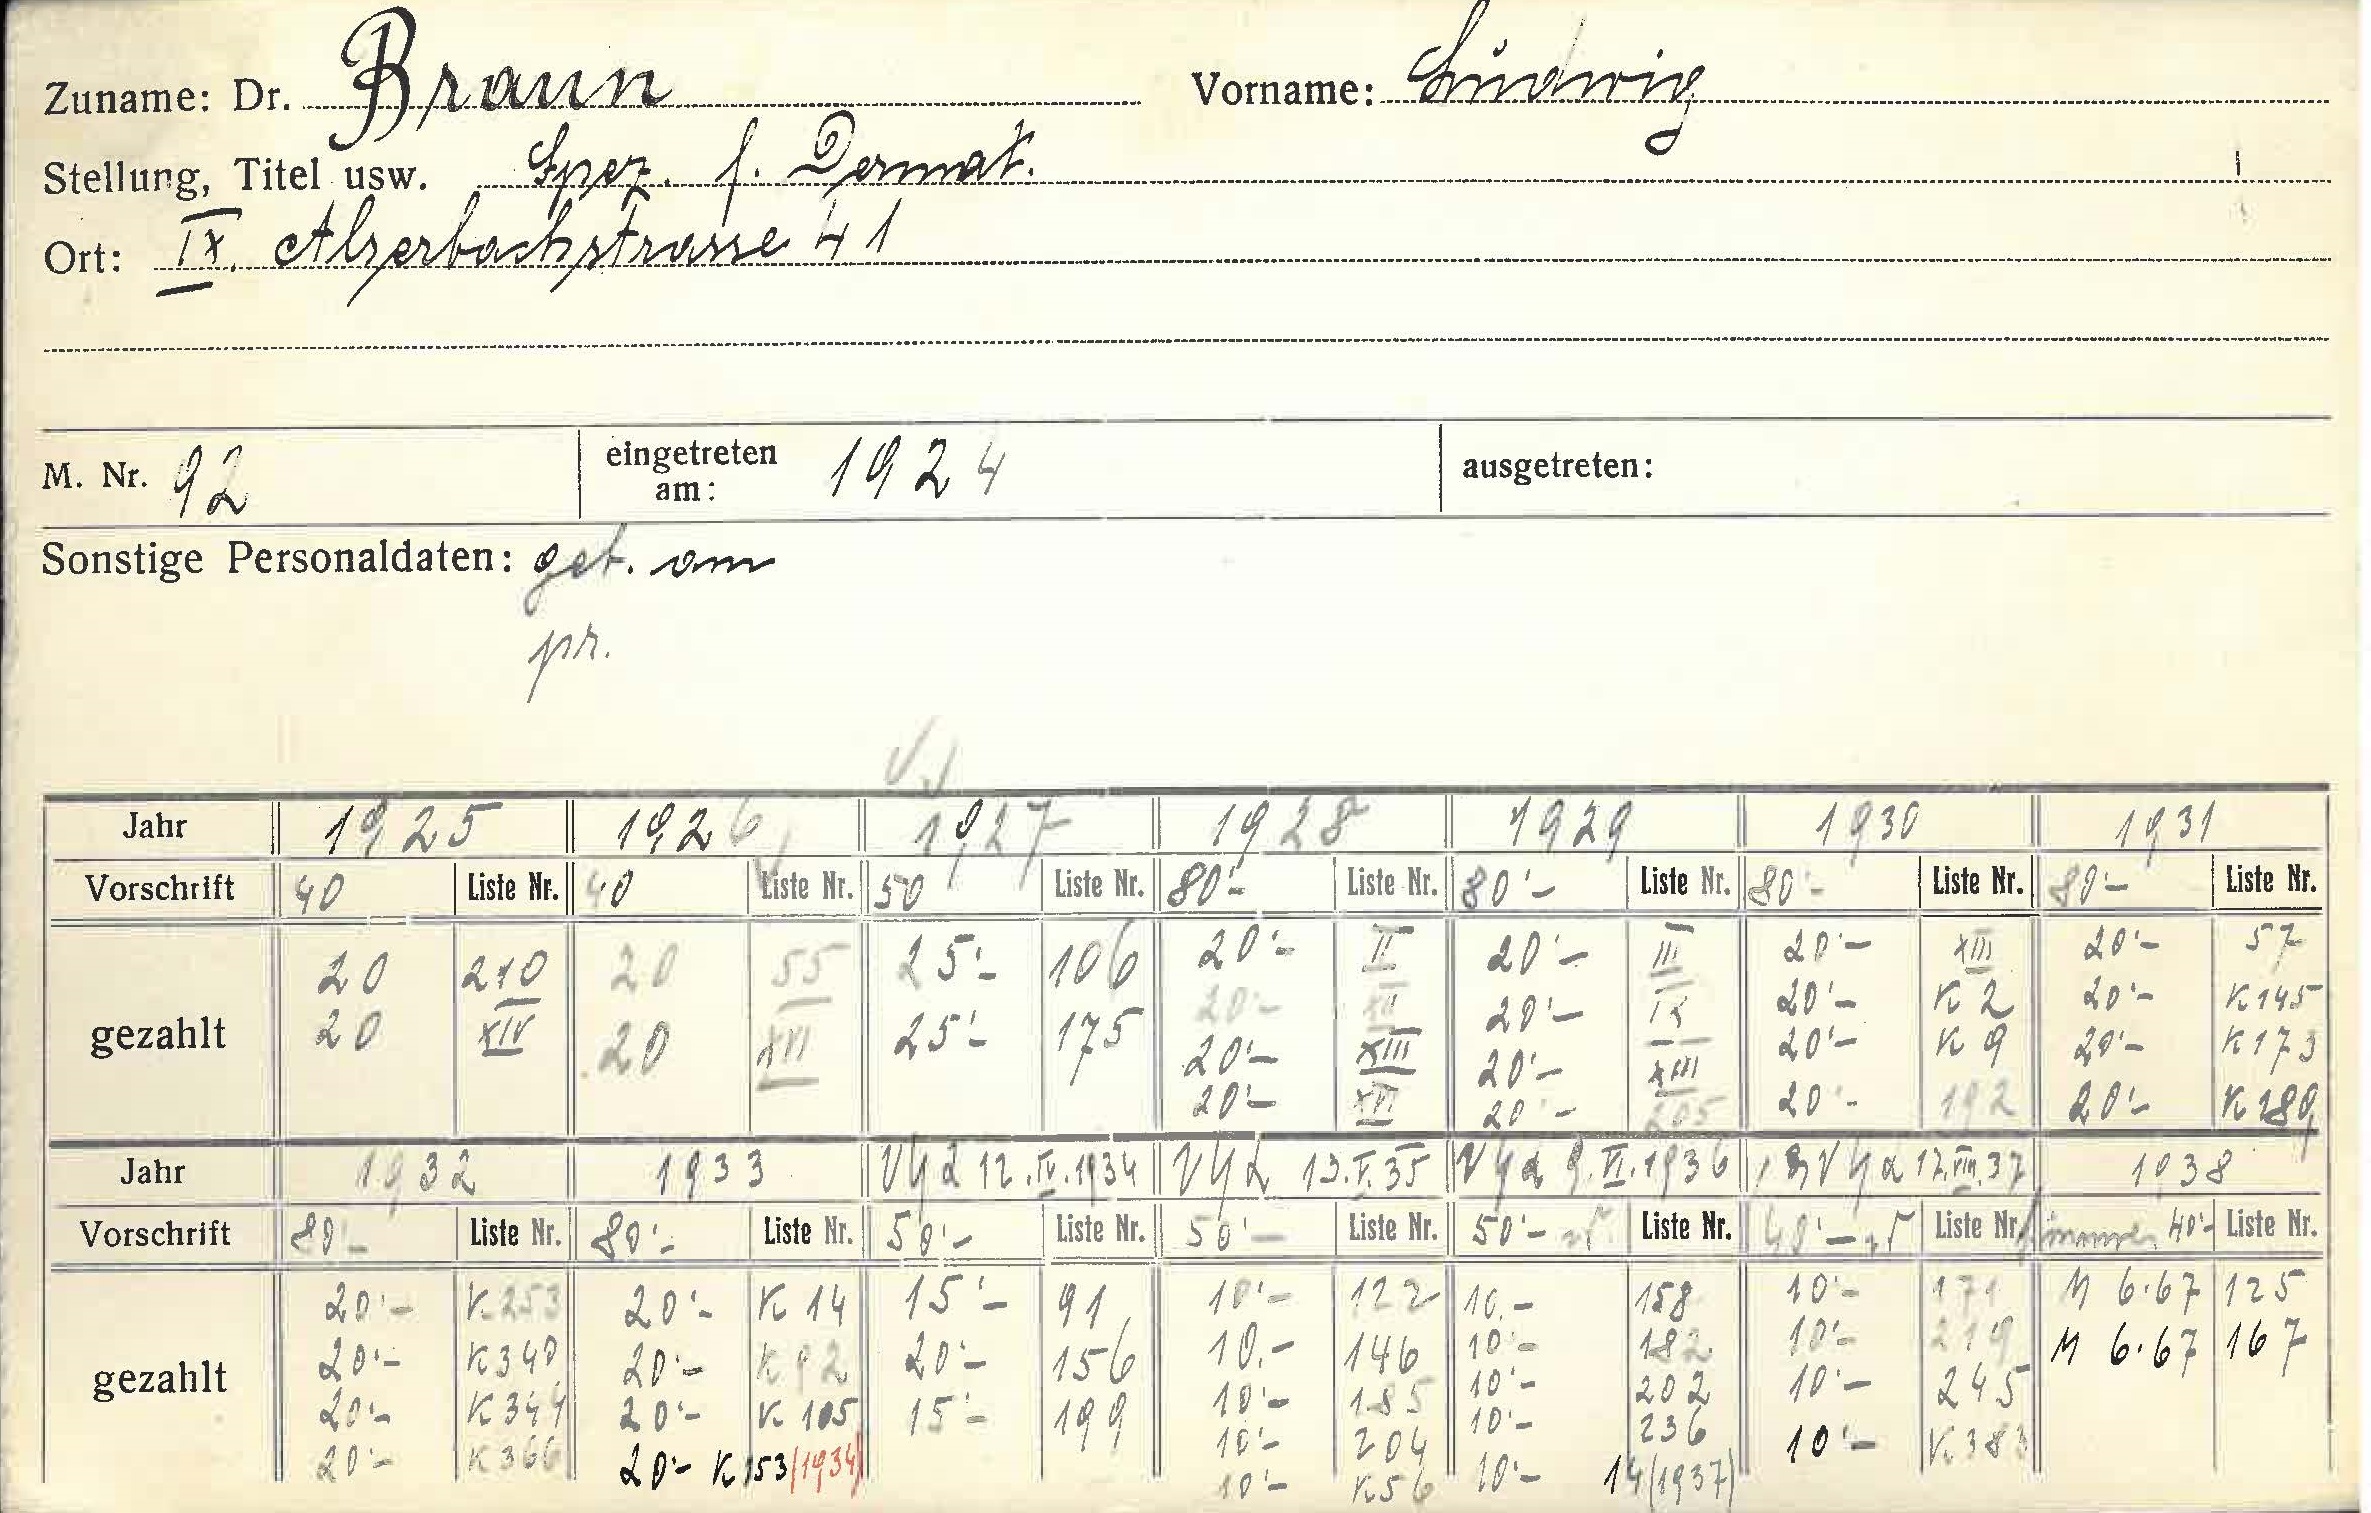 Zuname: Dr. Braun Vorname: Ludwig
Stellung, Titel usw. Spez. f. Dermat.
Ort: IX. Alserbachstrasse 41
M. Nr. 92 eingetreten am: 1924 ausgetreten:
Sonstige Personaldaten: geb. am
pr.
Jahr 1925 1926 1927 1928 1929 1930 1931
Vorschrift 40 Liste Nr. 40 Liste Nr. 50 Liste Nr. 80'- Liste Nr. 80'- Liste Nr. 80'- Liste Nr. 80'- Liste Nr.
20 210 20 55 25'- 106 20'- II 20'- III 20'- XIII 20'- 57
20'- XII 20'- IX 20'- K 2 20'- K 145
gezahlt 20 XIV 20 XVI 25'- 175 20'- XIII 20'- XIII 20'- K 9 20'- K 173
20'- XVI 20'- 205 20'- 192 20'- K 189
Jahr 1932 1933 12.IV.1934 13.V.35 9.VI.1936 17.VIII.37 1938
Vorschrift 80'- Liste Nr. 80'- Liste Nr. 50'- Liste Nr. 50'- Liste Nr. 50'- Liste Nr. 40'- Liste Nr. 40'- Liste Nr.
20'- K 253 20'- K 14 15'- 91 10'- 122 10.- 158 10'- 171 M 6.67 125
20'- K 340 20'- K 92 20'- 156 10.- 146 10'- 182 10'- 219 M 6.67 167
gezahlt 20'- K 344 20'- K 105 15'- 199 10'- 185 10'- 202 10'- 245
20'- K 366 20'- K 153 (1934) 10'- 204 10'- 236 10'- K 383
10'- K 56 10'- 14 (1937)